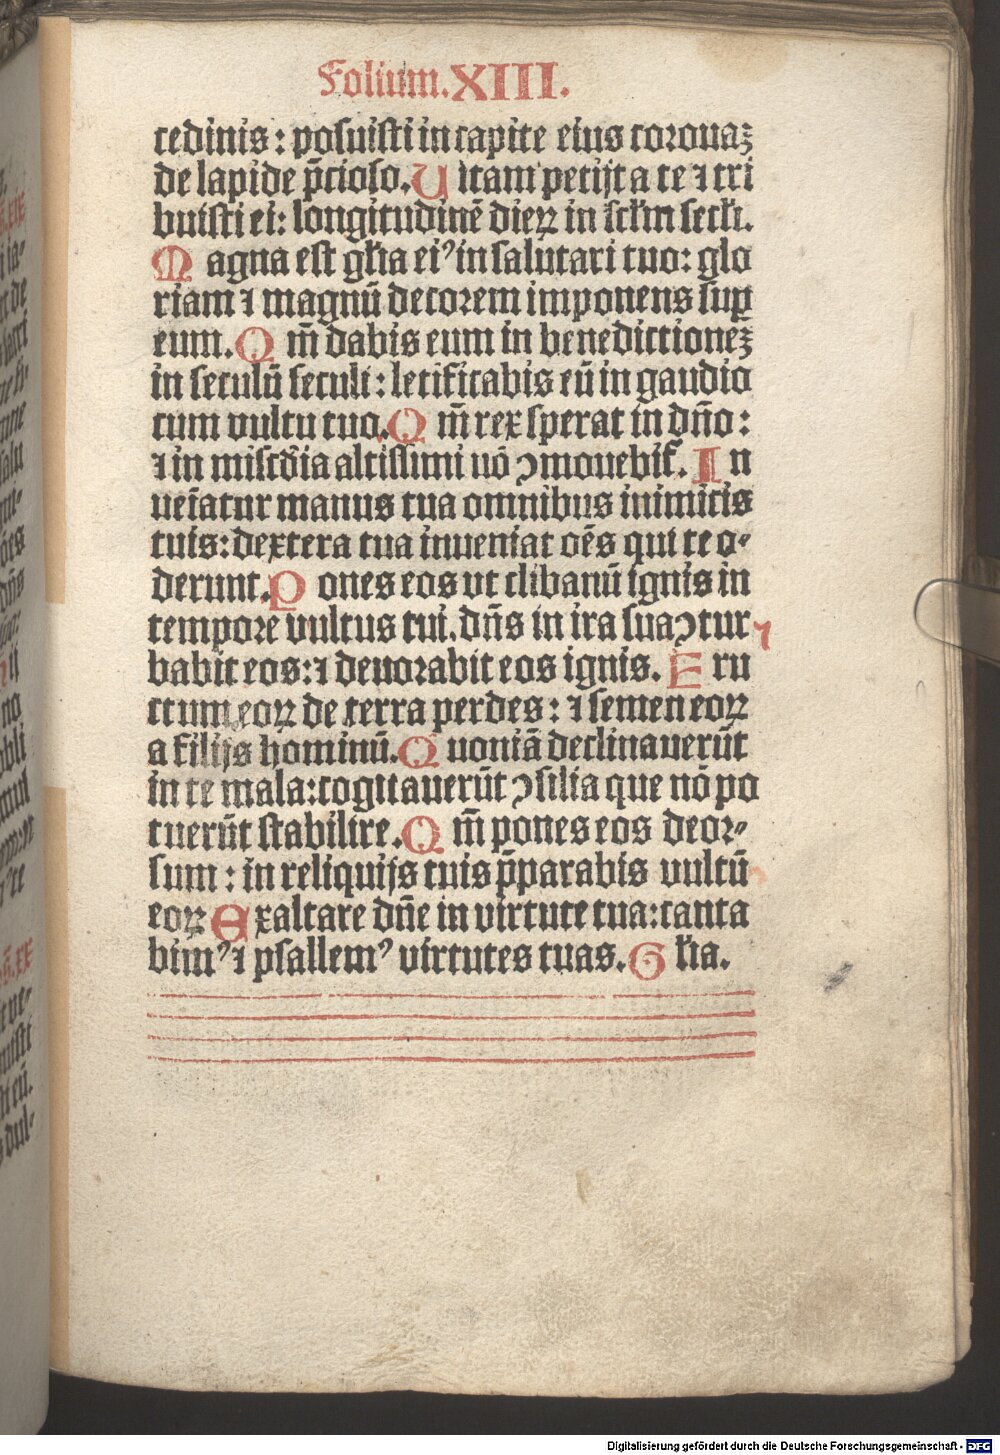 Folium.XIIII.
cedinis: posuisti in capite eius coronaꝫ
de lapide p̄cioso. Uitam petijt a te ⁊ tri
buisti ei: longitudinē dieꝝ in sctm̄ sctī.
Magna est gl̄ia eiꝰ in salutari tuo: glo
riam ⁊ magnū decorem impones sup̄
eum. Qm̄ dabis eum in benedictioneꝫ
in seculū seculi: letificabis eū in gaudio
cum vultu tuo. Qm̄ rex sperat in dn̄o:
⁊ in misc̄dia altissimi nō ꝯmouebit᷑. In
ueīatur manus tua omnibus inimicis
tuis: dextera tua inueniat oēs qui te o-
derunt. Pones eos ut clibanū ignis in
tempore vultus tui. dn̄s in ira sua ꝯtur
babit eos: ⁊ deuorabit eos ignis. Fru
ctum eoꝝ de terra perdes: ⁊ semen eoꝝ
a filijs hominū. Quoniā declinauerūt
in te mala: cogitauerūt ꝯsilia que nō po
tuerūt stabilire. Qm̄ pones eos deor-
sum: in reliquijs tuis p̄parabis vultū
eoꝝ Exaltare dn̄e in virtute tua: canta
bimꝰ ⁊ psallemꝰ virtutes tuas. Gl̄ia.
Digitalisierung gefördert durch die Deutsche Forschungsgemeinschaft - DFG